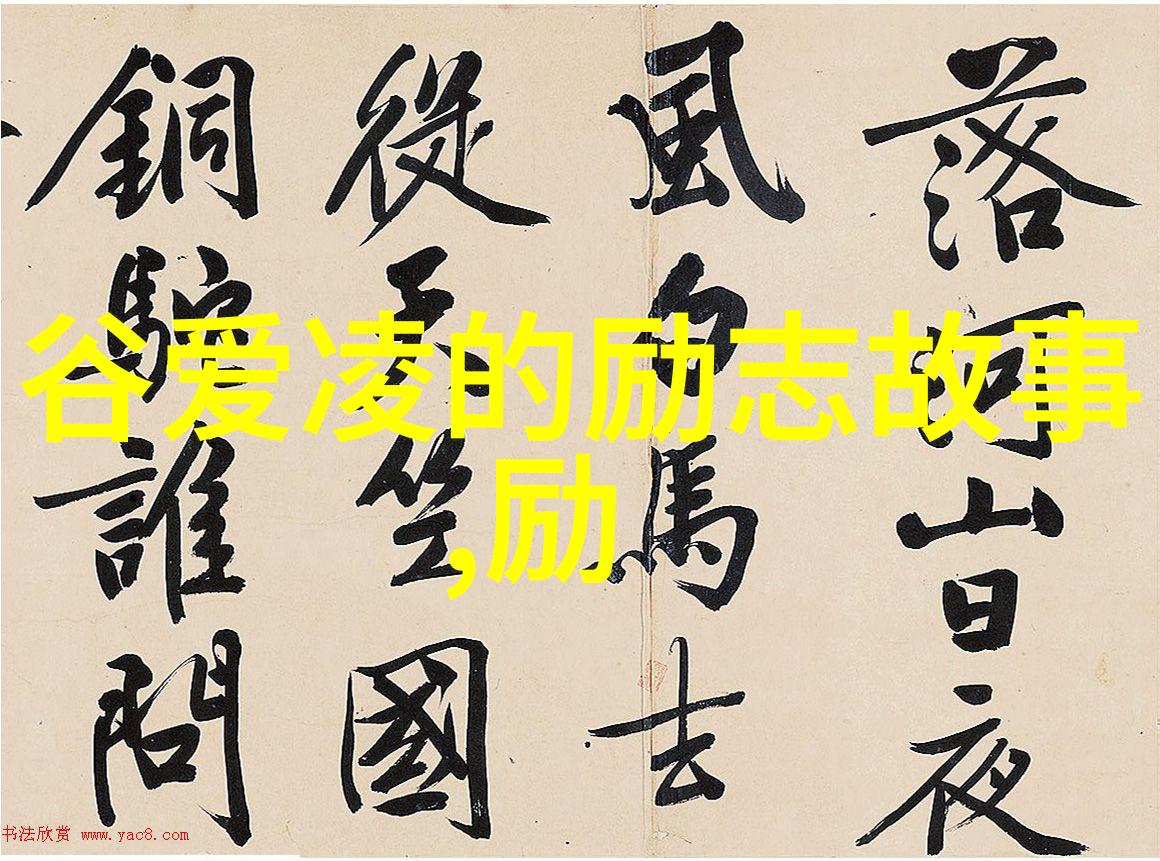 谷爱凌的励志故事
,励
落河山日夜
風白馬去
從天竺國
銅駝誰問
书法欣赏 www.yac8.com